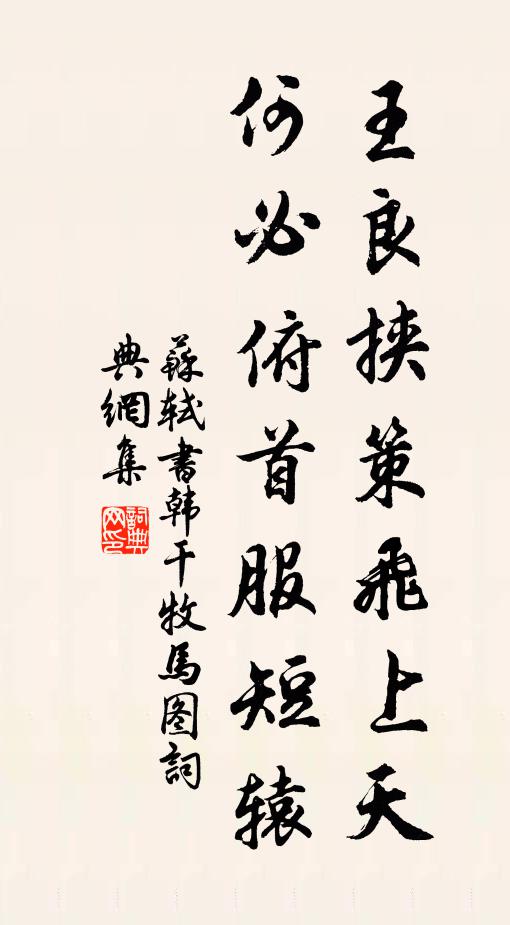 王良挟策飛上天
何必俯首服短辕
蘇軾書韩干牧馬图詞
典網集
詞典网印